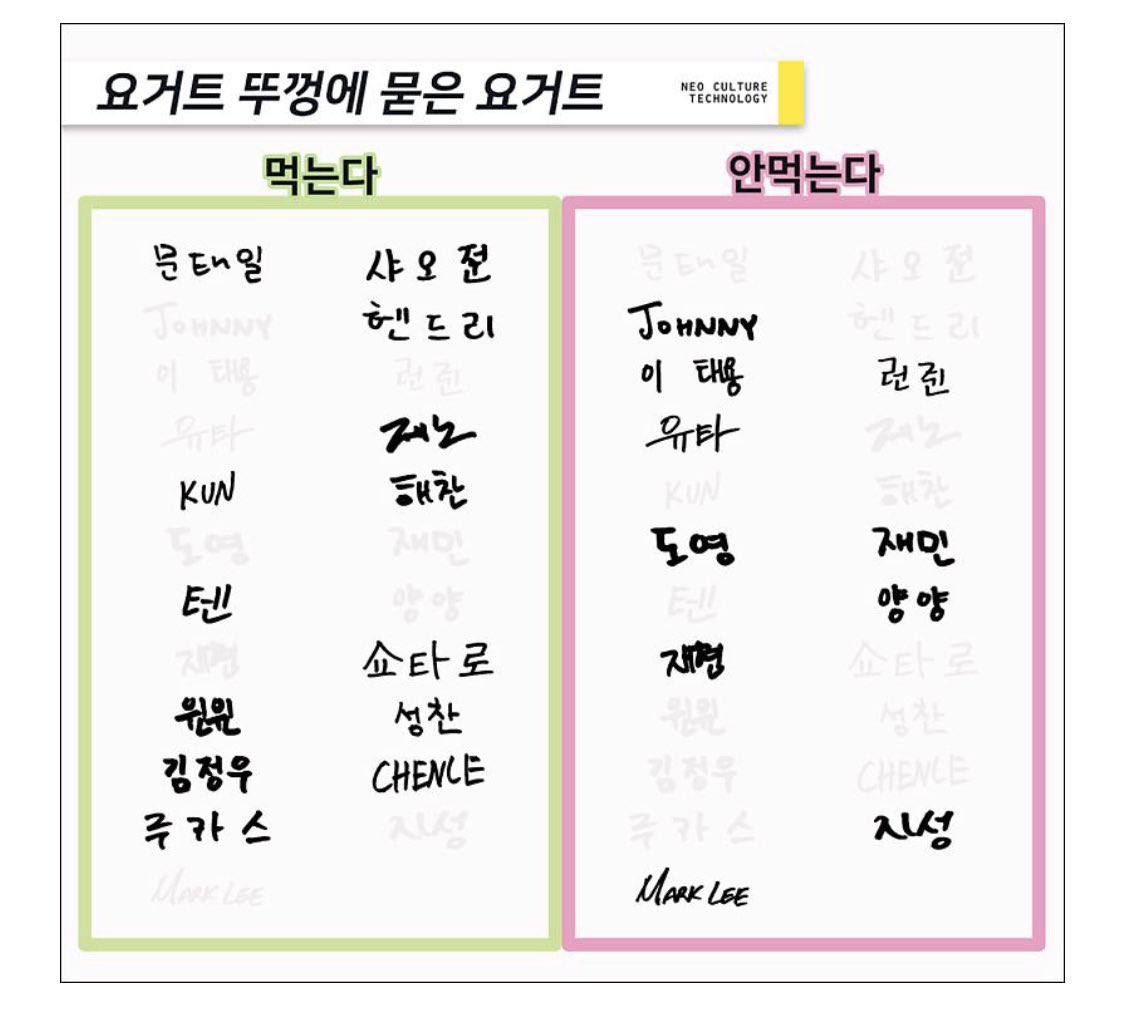 요거트 뚜껑에 묻은 요거트
NEO CULTURE
TECHNOLOGY
먹는다
문태일 샤오쥔
JOHNNY 헨드리
이 태용 런쥔
유타 제노
KUN 해찬
도영 재민
텐 양양
재현 쇼타로
윈윈 성찬
김정우 CHENLE
루카스 지성
MARK LEE
안먹는다
문태일 샤오쥔
JOHNNY 헨드리
이 태용 런쥔
유타 제노
KUN 해찬
도영 재민
텐 양양
재현 쇼타로
윈윈 성찬
김정우 CHENLE
루카스 지성
MARK LEE